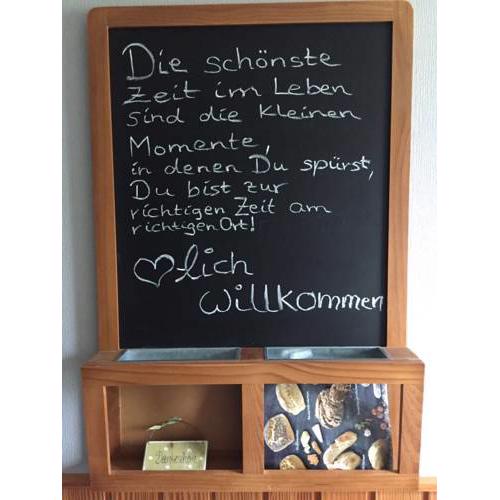 Die schönste
Zeit im Leben
sind die kleinen
Momente,
in denen Du spürst,
Du bist zur
richtigen Zeit am
richtigen Ort!
♡lich
willkommen